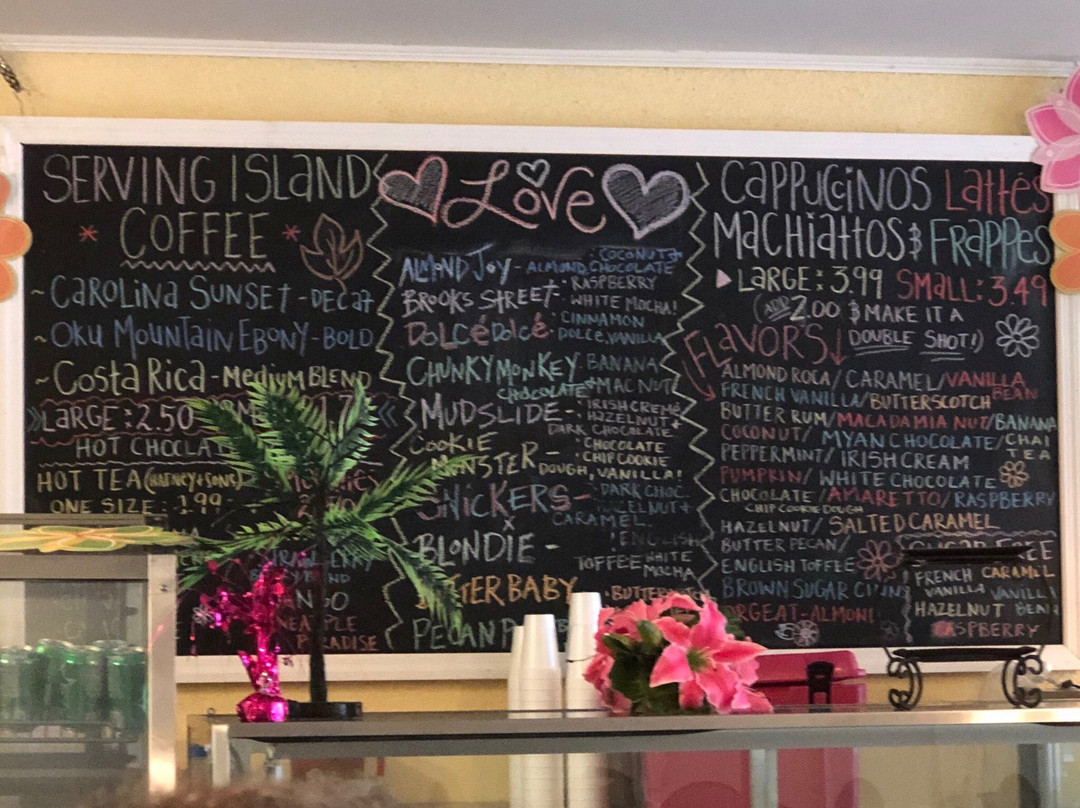 SERVING ISLAND
* COFFEE *
~ CAROLINA SUNSET - DECAF
~ OKU MOUNTAIN EBONY - BOLD
~ COSTA RICA - MEDIUM BLEND
LARGE: 2.50
HOT CHOCLAT
HOT TEA (HARNEY + SONS)
ONE SIZE - 1.99
PARADISE
LOVE
ALMOND JOY - ALMOND, CHOCOLATE
COCONUT +
BROOKS STREET - • RASPBERRY
• WHITE MOCHA!
DOLCé DOLCé - CINNAMON
DOLCE, VANILLA
CHUNKY MONKEY - BANANA
CHOCOLATE + MAC NUT
MUDSLIDE - • IRISH CREME
HAZELNUT +
DARK CHOCALATE
COOKIE MONSTER - • CHOCOLATE
• CHIP COOKIE
DOUGH, VANILLA!
SNICKERS - DARK CHOC
HAZELNUT +
CARAMEL
x
BLONDIE - ENGLISH
TOFFEE WHITE
MOCHA
CAPPUCCINOS LATTéS
MACHIATTOS & FRAPPéS
LARGE: 3.99 SMALL: 3.49
(ADD 2.00 $ MAKE IT A
DOUBLE SHOT!)
FLAVORS ↓
ALMOND ROCA / CARAMEL / VANILLA BEAN
FRENCH VANILLA / BUTTERSCOTCH
BUTTER RUM / MACADAMIA NUT / BANANA
COCONUT / MYAN CHOCOLATE / CHAI TEA
PEPPERMINT / IRISH CREAM
PUMPKIN / WHITE CHOCOLATE
CHOCOLATE / AMARETTO / RASPBERRY
CHIP COOKIE DOUGH
HAZELNUT / SALTED CARAMEL
BUTTER PECAN /
ENGLISH TOFFEE
BROWN SUGAR
ORGEAT - ALMOND
SUGAR FREE
FRENCH VANILLA CARAMEL
VANILLA
HAZELNUT BEAN
RASPBERRY